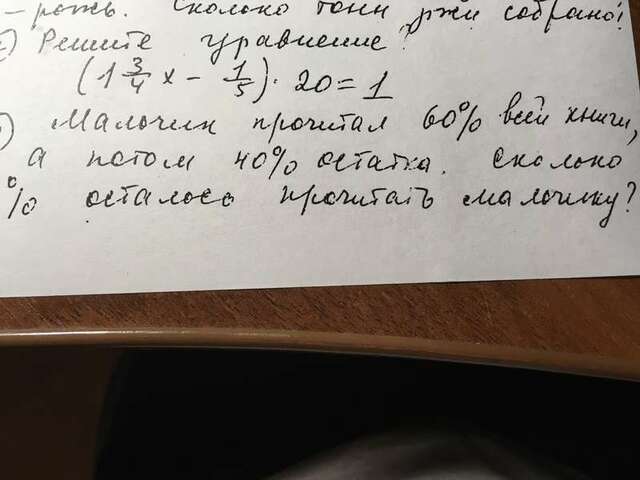 – рожь. Сколько тонн ржи собрано?
Решите уравнение?
(1 3/4 x – 1/5) · 20 = 1
) Мальчик прочитал 60% всей книги,
а потом 40% остатка. Сколько
% осталось прочитать мальчику?